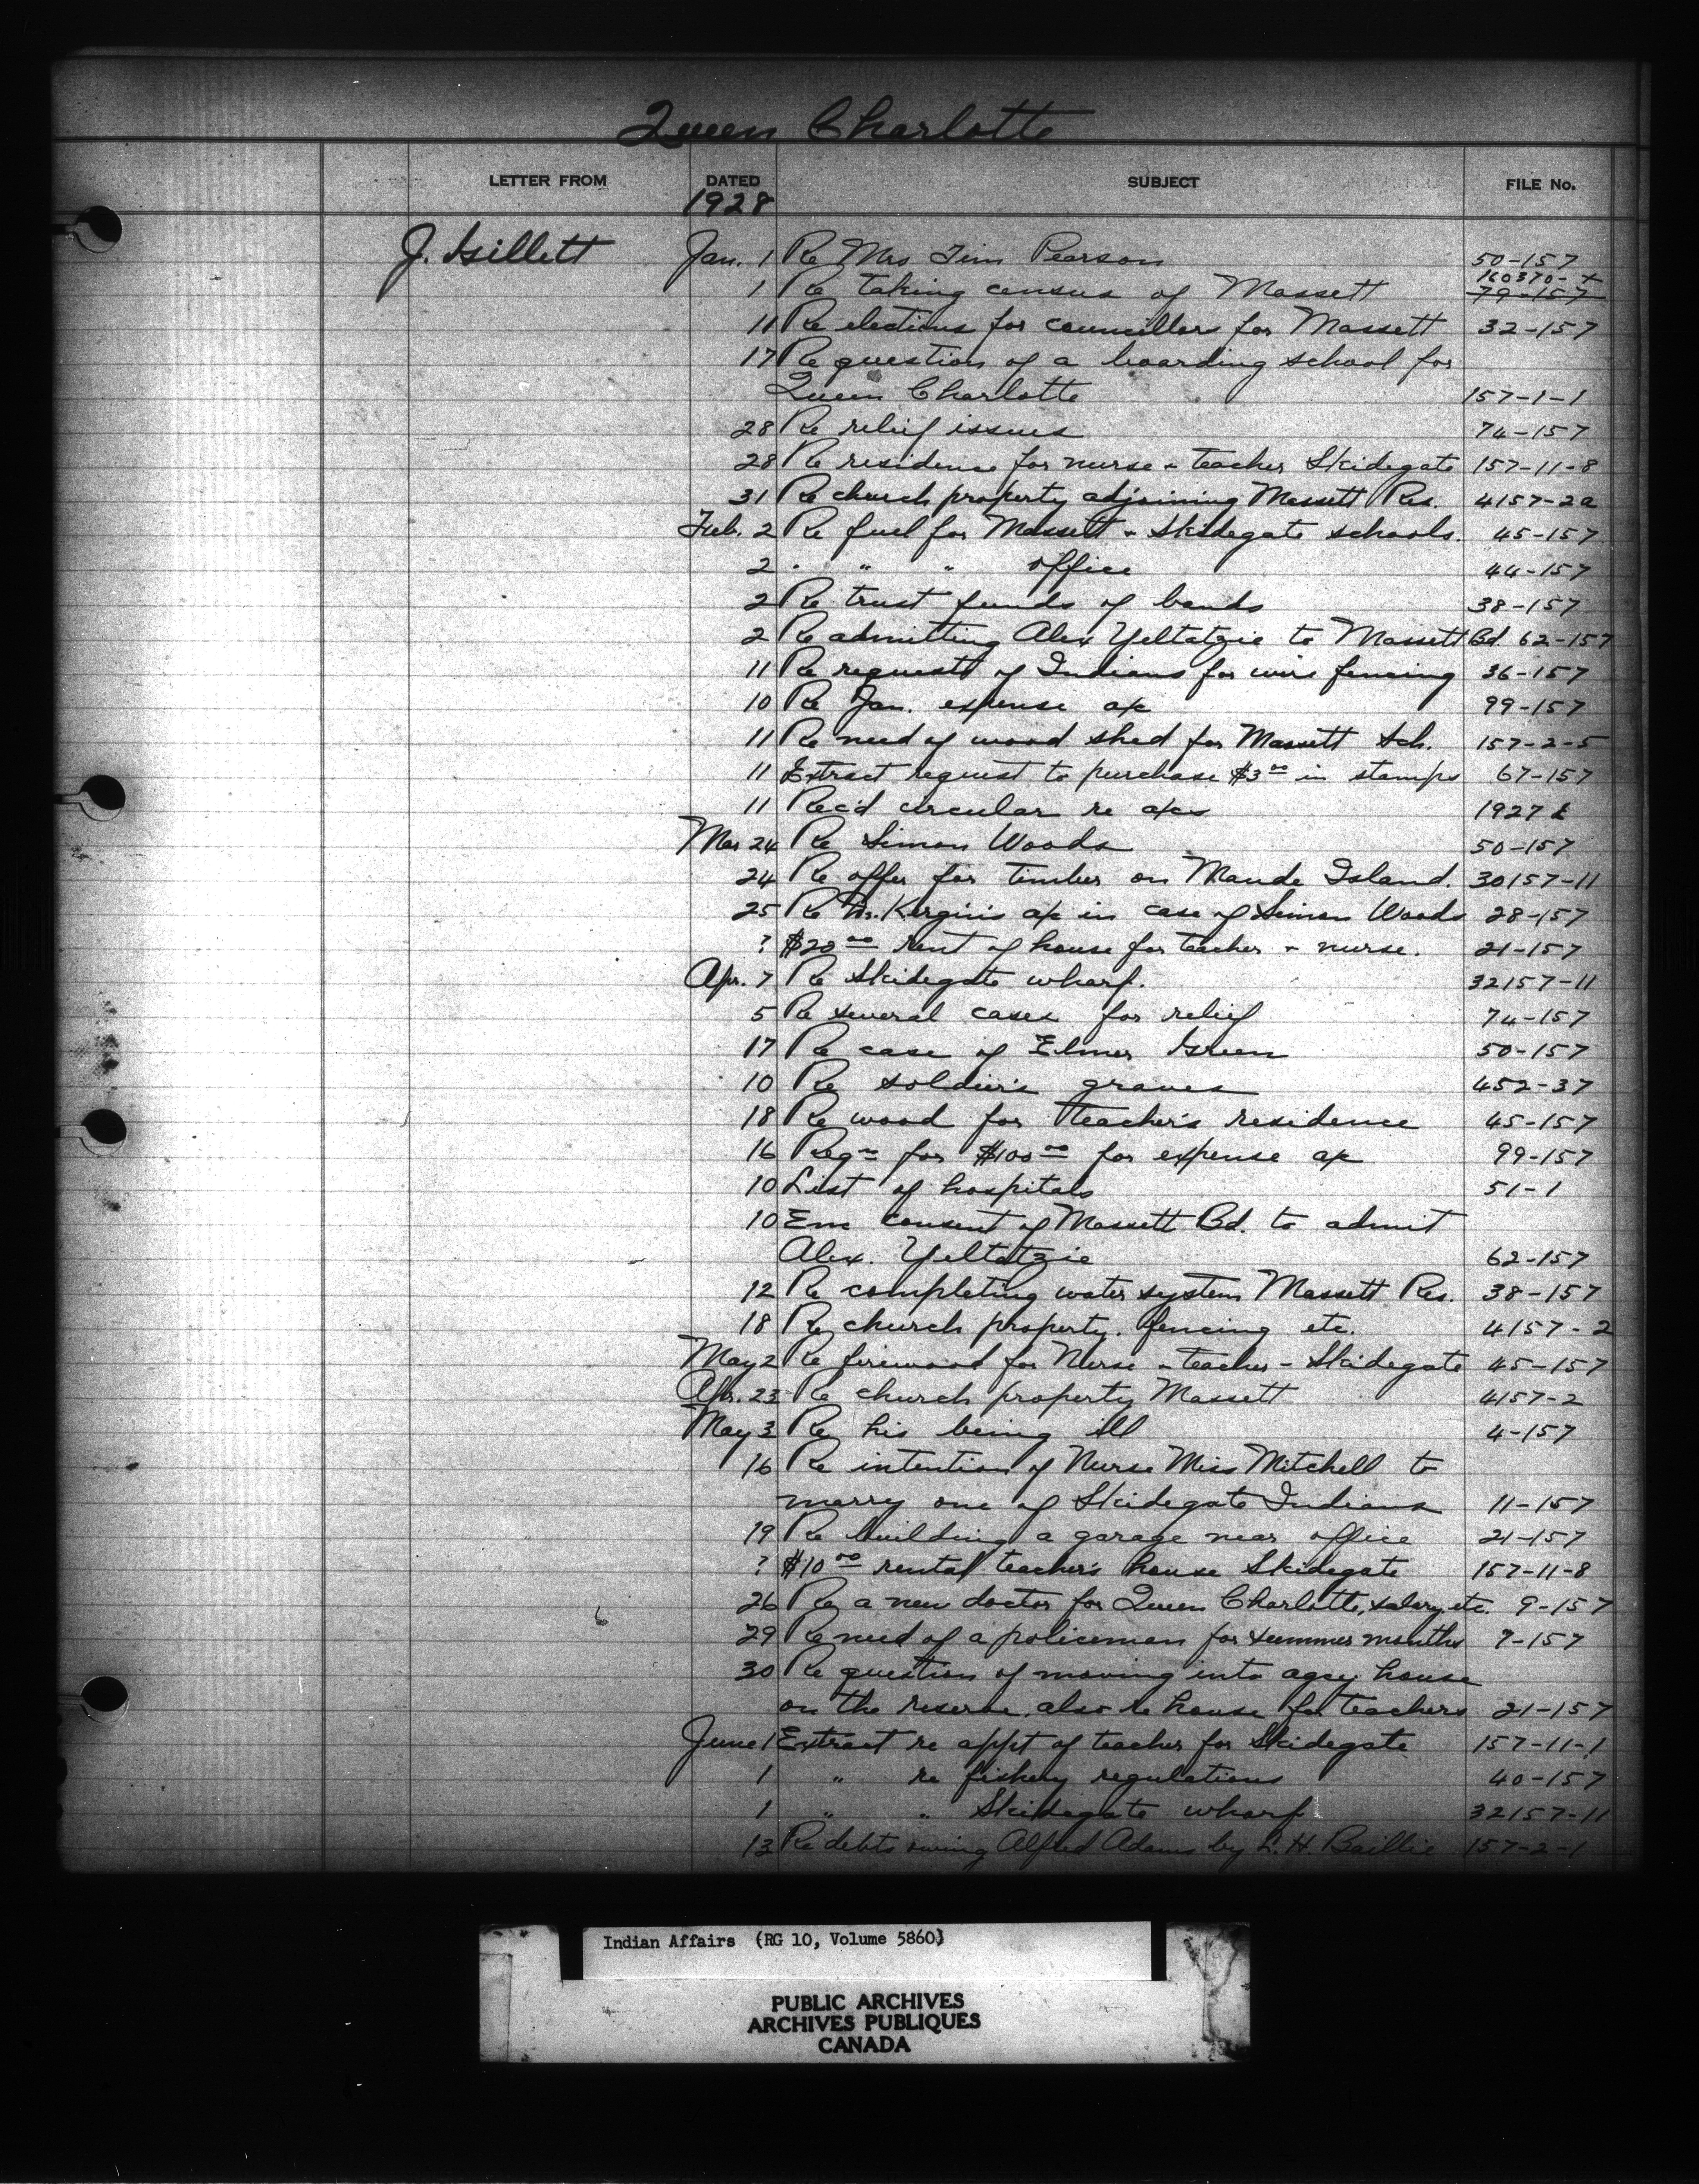 Queen Charlotte
LETTER FROM DATED SUBJECT FILE No.
1928
J. Gillett Jan. 1 Re Mrs Tim Pearson 50-157
160370-+
1 Re taking census of Massett 79-157
11 Re elections for councillors for Massett 32-157
17 Re question of a boarding school for
Queen Charlotte 157-1-1
28 Re relief issues 74-157
28 Re residence for nurse & teacher Skidegate 157-11-8
31 Re church property adjoining Massett Res. 4157-2a
Feb. 2 Re fuel for Massett & Skidegate schools. 45-157
2 " " " office 44-157
2 Re trust funds of bands 38-157
2 Re admitting Alex Yeltatzie to Massett Bd. 62-157
11 Re request of Indians for wire fencing 36-157
10 Re Jan. expense a/c 99-157
11 Re need of wood shed for Massett Sch. 157-2-5
11 Extract request to purchase $3.00 in stamps 67-157
11 Rec'd circular re a/cs 1927
Mar 24 Re Simon Woods 50-157
24 Re offer for timber on Maude Island. 30157-11
25 Re Dr. Kergin's a/c in case of Simon Woods 28-157
? $20.00 rent of house for teacher & nurse. 21-157
Apr. 7 Re Skidegate wharf. 32157-11
5 Re several cases for relief 74-157
17 Re case of Elmer Green 50-157
10 Re soldier's graves 452-37
18 Re wood for teacher's residence 45-157
16 Reqn for $100.00 for expense a/c 99-157
10 List of hospitals 51-1
10 Enc consent of Massett Bd. to admit
Alex. Yeltatzie 62-157
12 Re completing water system Massett Res. 38-157
18 Re church property. fencing etc. 4157-2
May 2 Re firewood for Nurse & teacher - Skidegate 45-157
Apr. 23 Re church property Massett 4157-2
May 3 Re his being ill 4-157
16 Re intention of Nurse Miss Mitchell to
marry one of Skidegate Indians 11-157
19 Re building a garage near office 21-157
? $10.00 rental teacher's house Skidegate 157-11-8
26 Re a new doctor for Queen Charlotte, salary, etc. 9-157
29 Re need of a policeman for summer months 7-157
30 Re question of moving into agcy house
on the reserve, also re house for teachers 21-157
June 1 Extract re appt of teacher for Skidegate 157-11-1
1 " re fishery regulations 40-157
1 " " Skidegate wharf 32157-11
13 Re debts owing Alfred Adams by L. H. Baillie 157-2-1
Indian Affairs (RG 10, Volume 5860)
PUBLIC ARCHIVES
ARCHIVES PUBLIQUES
CANADA